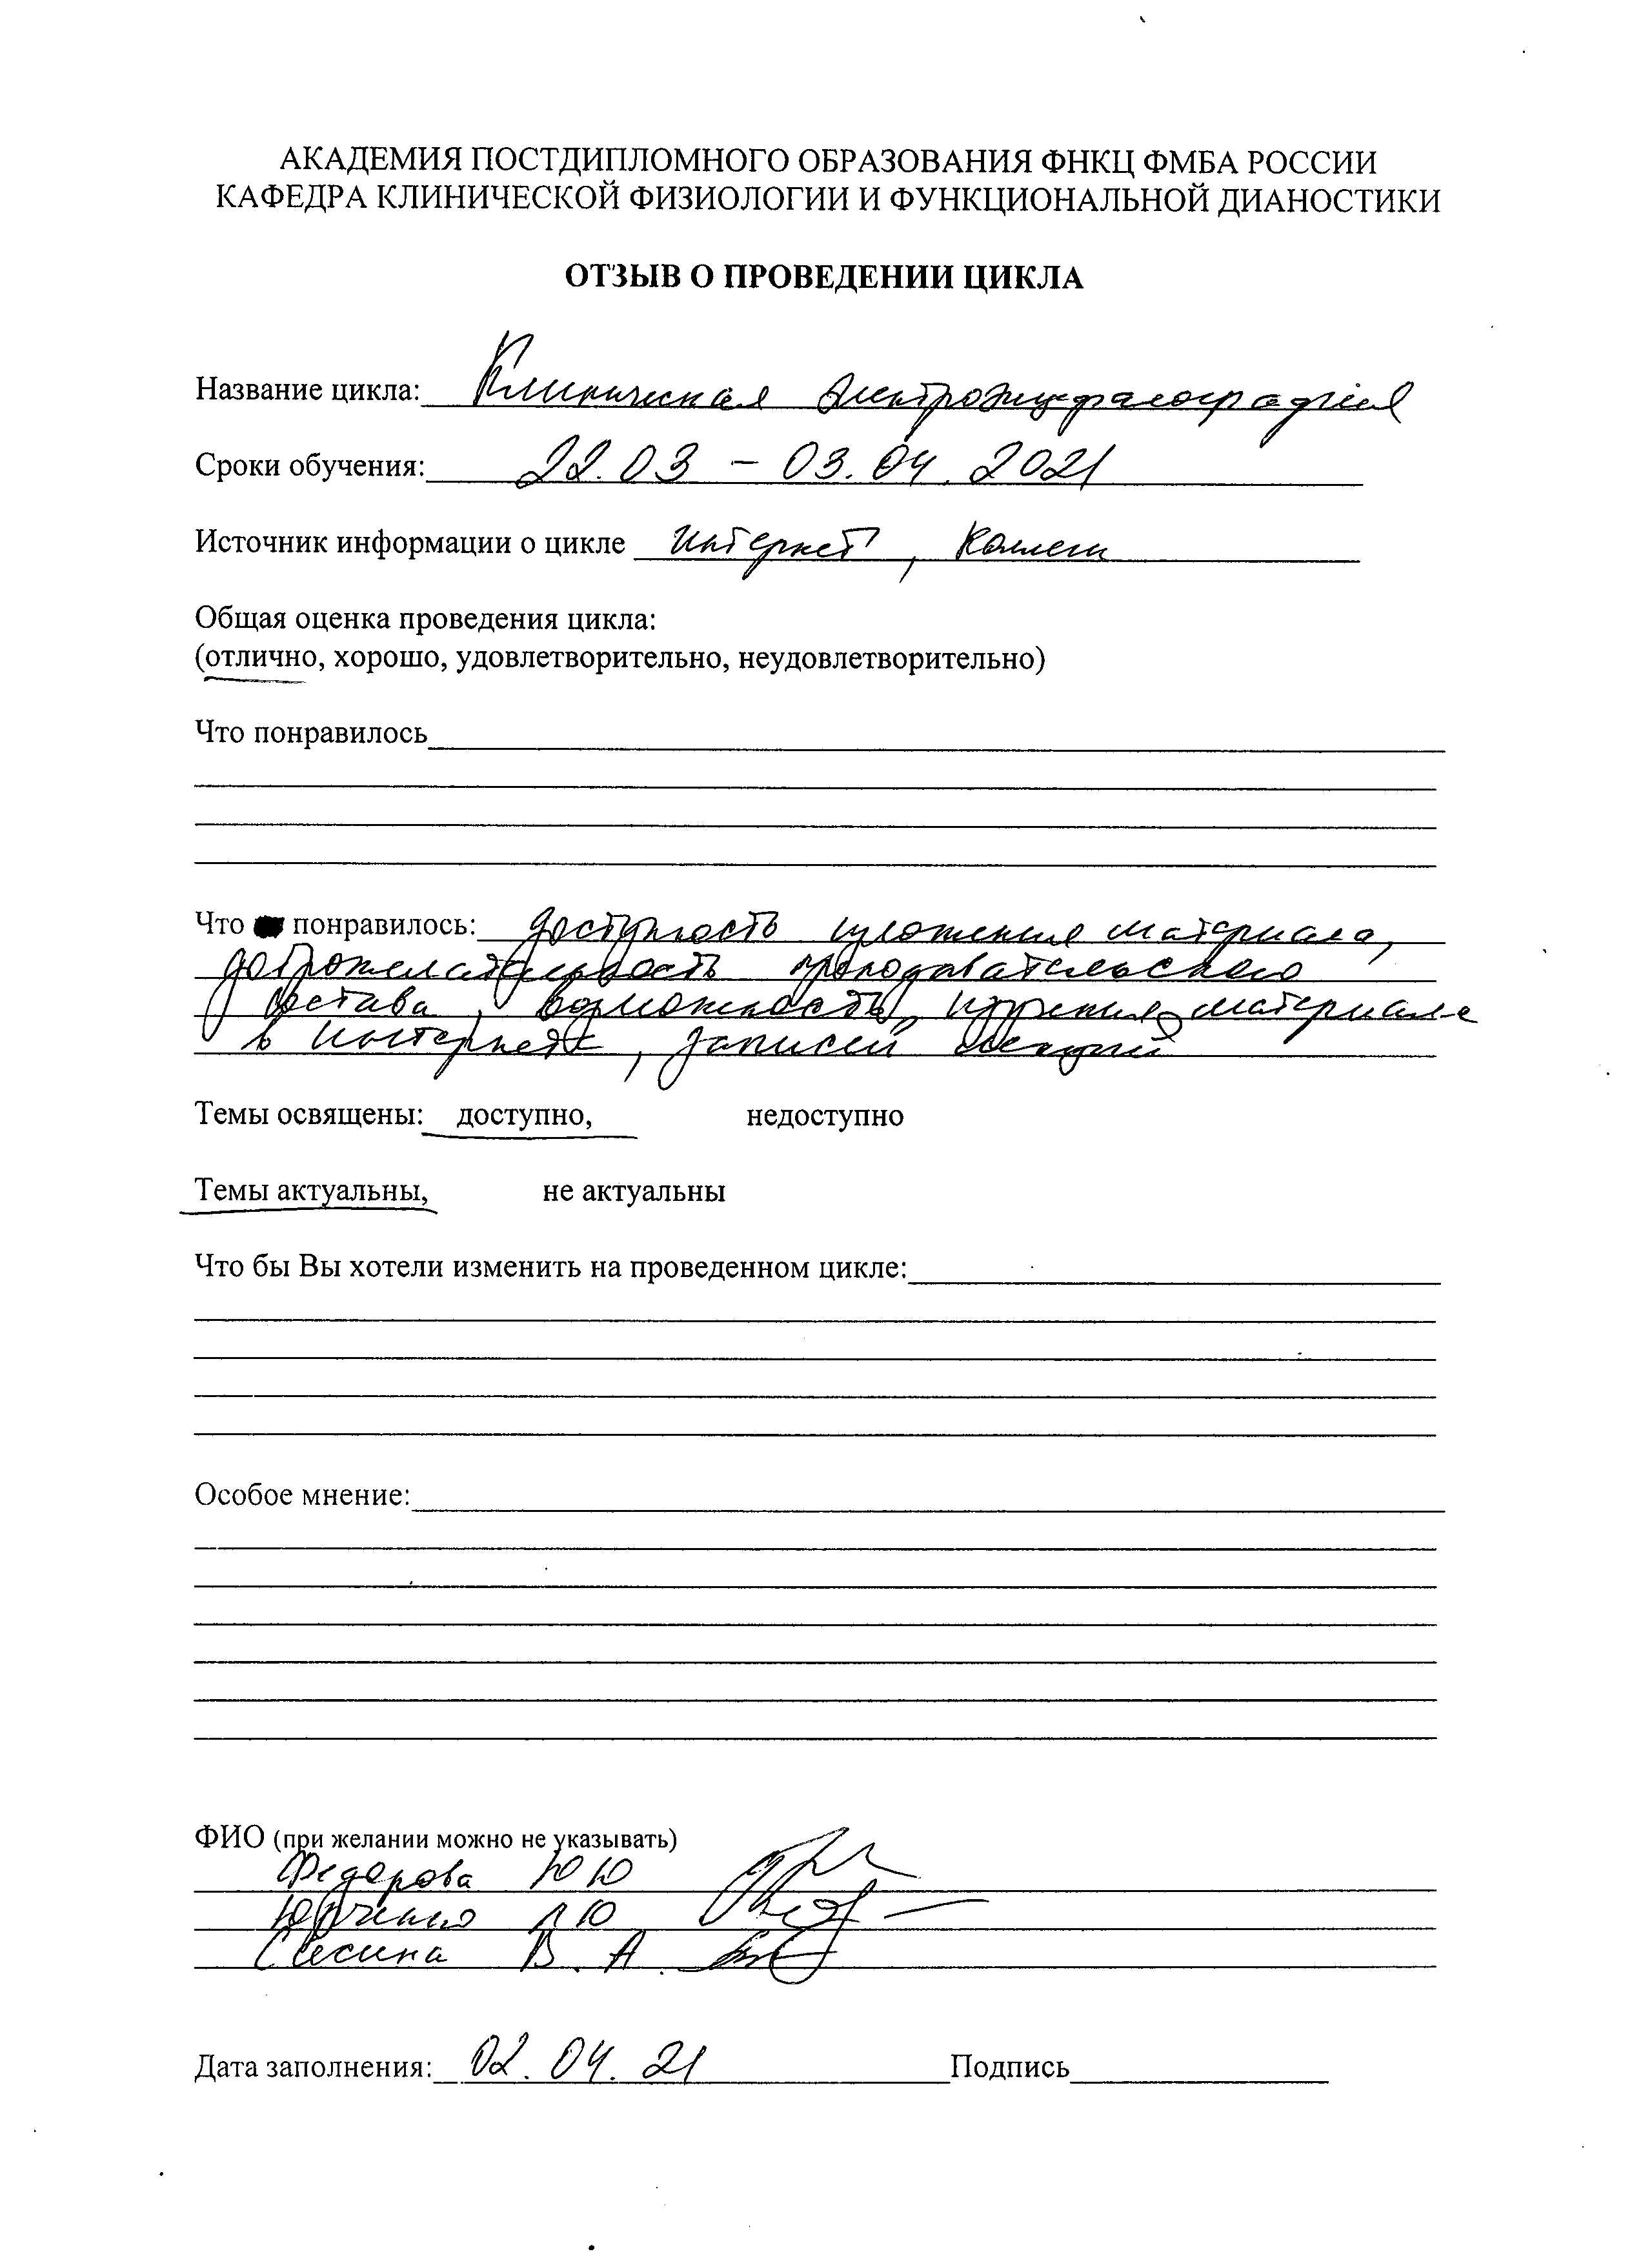 АКАДЕМИЯ ПОСТДИПЛОМНОГО ОБРАЗОВАНИЯ ФНКЦ ФМБА РОССИИ
КАФЕДРА КЛИНИЧЕСКОЙ ФИЗИОЛОГИИ И ФУНКЦИОНАЛЬНОЙ ДИАНОСТИКИ
ОТЗЫВ О ПРОВЕДЕНИИ ЦИКЛА
Название цикла: Клиническая электроэнцефалография
Сроки обучения: 22.03 – 03.04.2021
Источник информации о цикле интернет, коллеги
Общая оценка проведения цикла:
(отлично, хорошо, удовлетворительно, неудовлетворительно)
Что понравилось
Что понравилось: доступность изложения материала,
доброжелательность преподавательского
состава, возможность изучения материала
в интернете, записей лекций
Темы освящены: доступно, недоступно
Темы актуальны, не актуальны
Что бы Вы хотели изменить на проведенном цикле:
Особое мнение:
ФИО (при желании можно не указывать)
Федорова Ю Ю
Юрченко Л Ю
В. А.
Дата заполнения: 02.04.21 Подпись